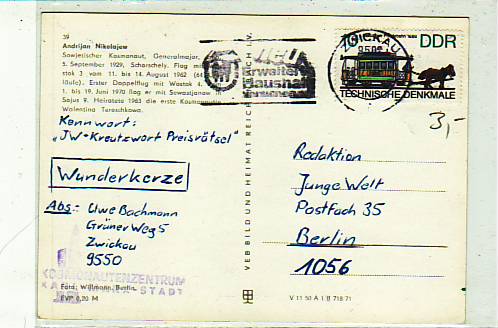 39
Andrijan Nikolajew
Sowjetischer Kosmonaut, Generalmajor,
5. September 1929, Schorschely. Flog mit
stok 3 vom 11. bis 14. August 1962 (64
läufe). Erster Doppelflug mit Wostok 4.
1. bis 19. Juni 1970 flog er mit Sewastjanow in
Sojus 9. Heiratete 1963 die erste Kosmonautin
Walentina Tereschkowa.
Kennwort:
„JW-Kreuzwort Preisrätsel"
Wunderkerze
Abs.: Uwe Bachmann
Grüner Weg 5
Zwickau
9550
KOSMONAUTENZENTRUM
KARL-MARX-STADT
Foto: Willmann, Berlin
EVP 0,20 M
VEB BILD UND HEIMAT REICHENBACH I. V.
V 11 50 A 1 B 718 71
ZWICKAU
DDR
TECHNISCHE DENKMALE
3,-
Redaktion
Junge Welt
Postfach 35
Berlin
1056